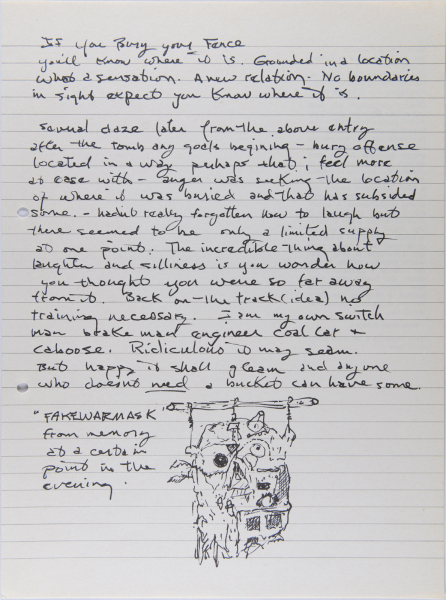 If you Bury your Fence
you'll know where it is. Grounded in a location
what a sensation. A new relation - No boundaries
in sight expect you know where it is.
several daze later from the above entry
after the tomb any goals begining - bury offense
located in a way perhaps that i feel more
at ease with - anger was seeking the location
of where it was buried and that has subsided
some. - hadn't really forgotten how to laugh but
there seemed to be only a limited supply
at one point. The incredible thing about
laughter and silliness is you wonder how
you thought you were so far away
from it. Back on the track (idea) no
training necessary. I am my own switch
man brake man engineer coal car +
caboose. Ridiculous it may seam.
But happy it shall gleam and anyone
who doesn't need a bucket can have some.
"FAKEWARMASK"
from memory
at a certain
point in the
evening.